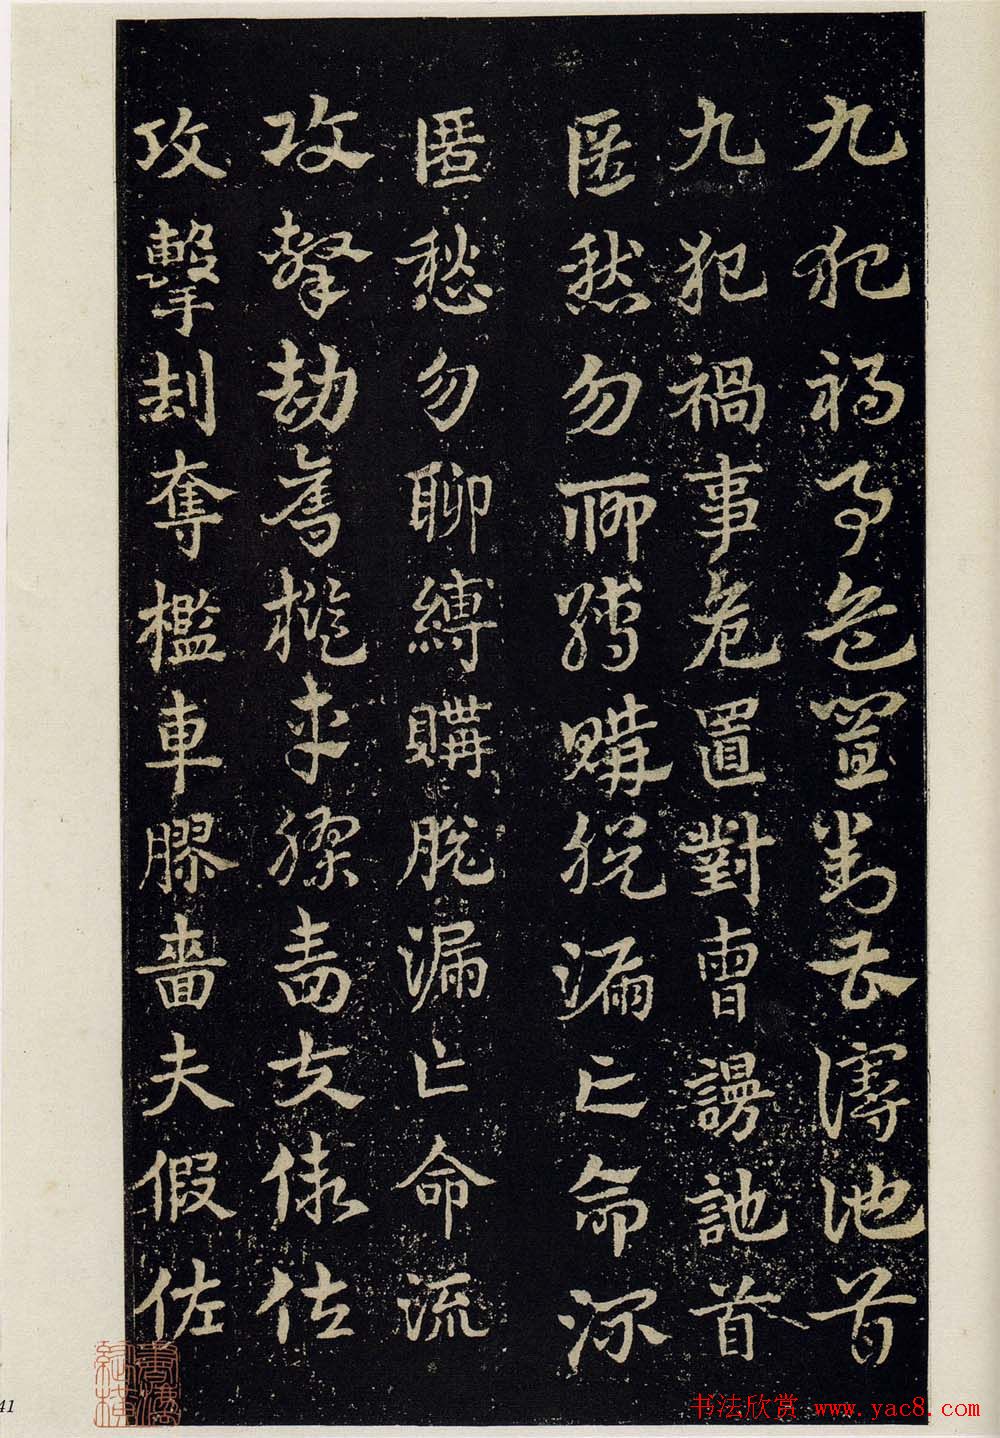 九犯禍事危置對曹謾訑首
九犯禍事危置對曹謾訑首
匿愁勿聊縛購脫漏亡命流
匿愁勿聊縛購脫漏亡命流
攻擊劫奪檻車膠嗇夫假佐
攻擊刦奪檻車膠嗇夫假佐
41
书法欣赏 www.yac8.com